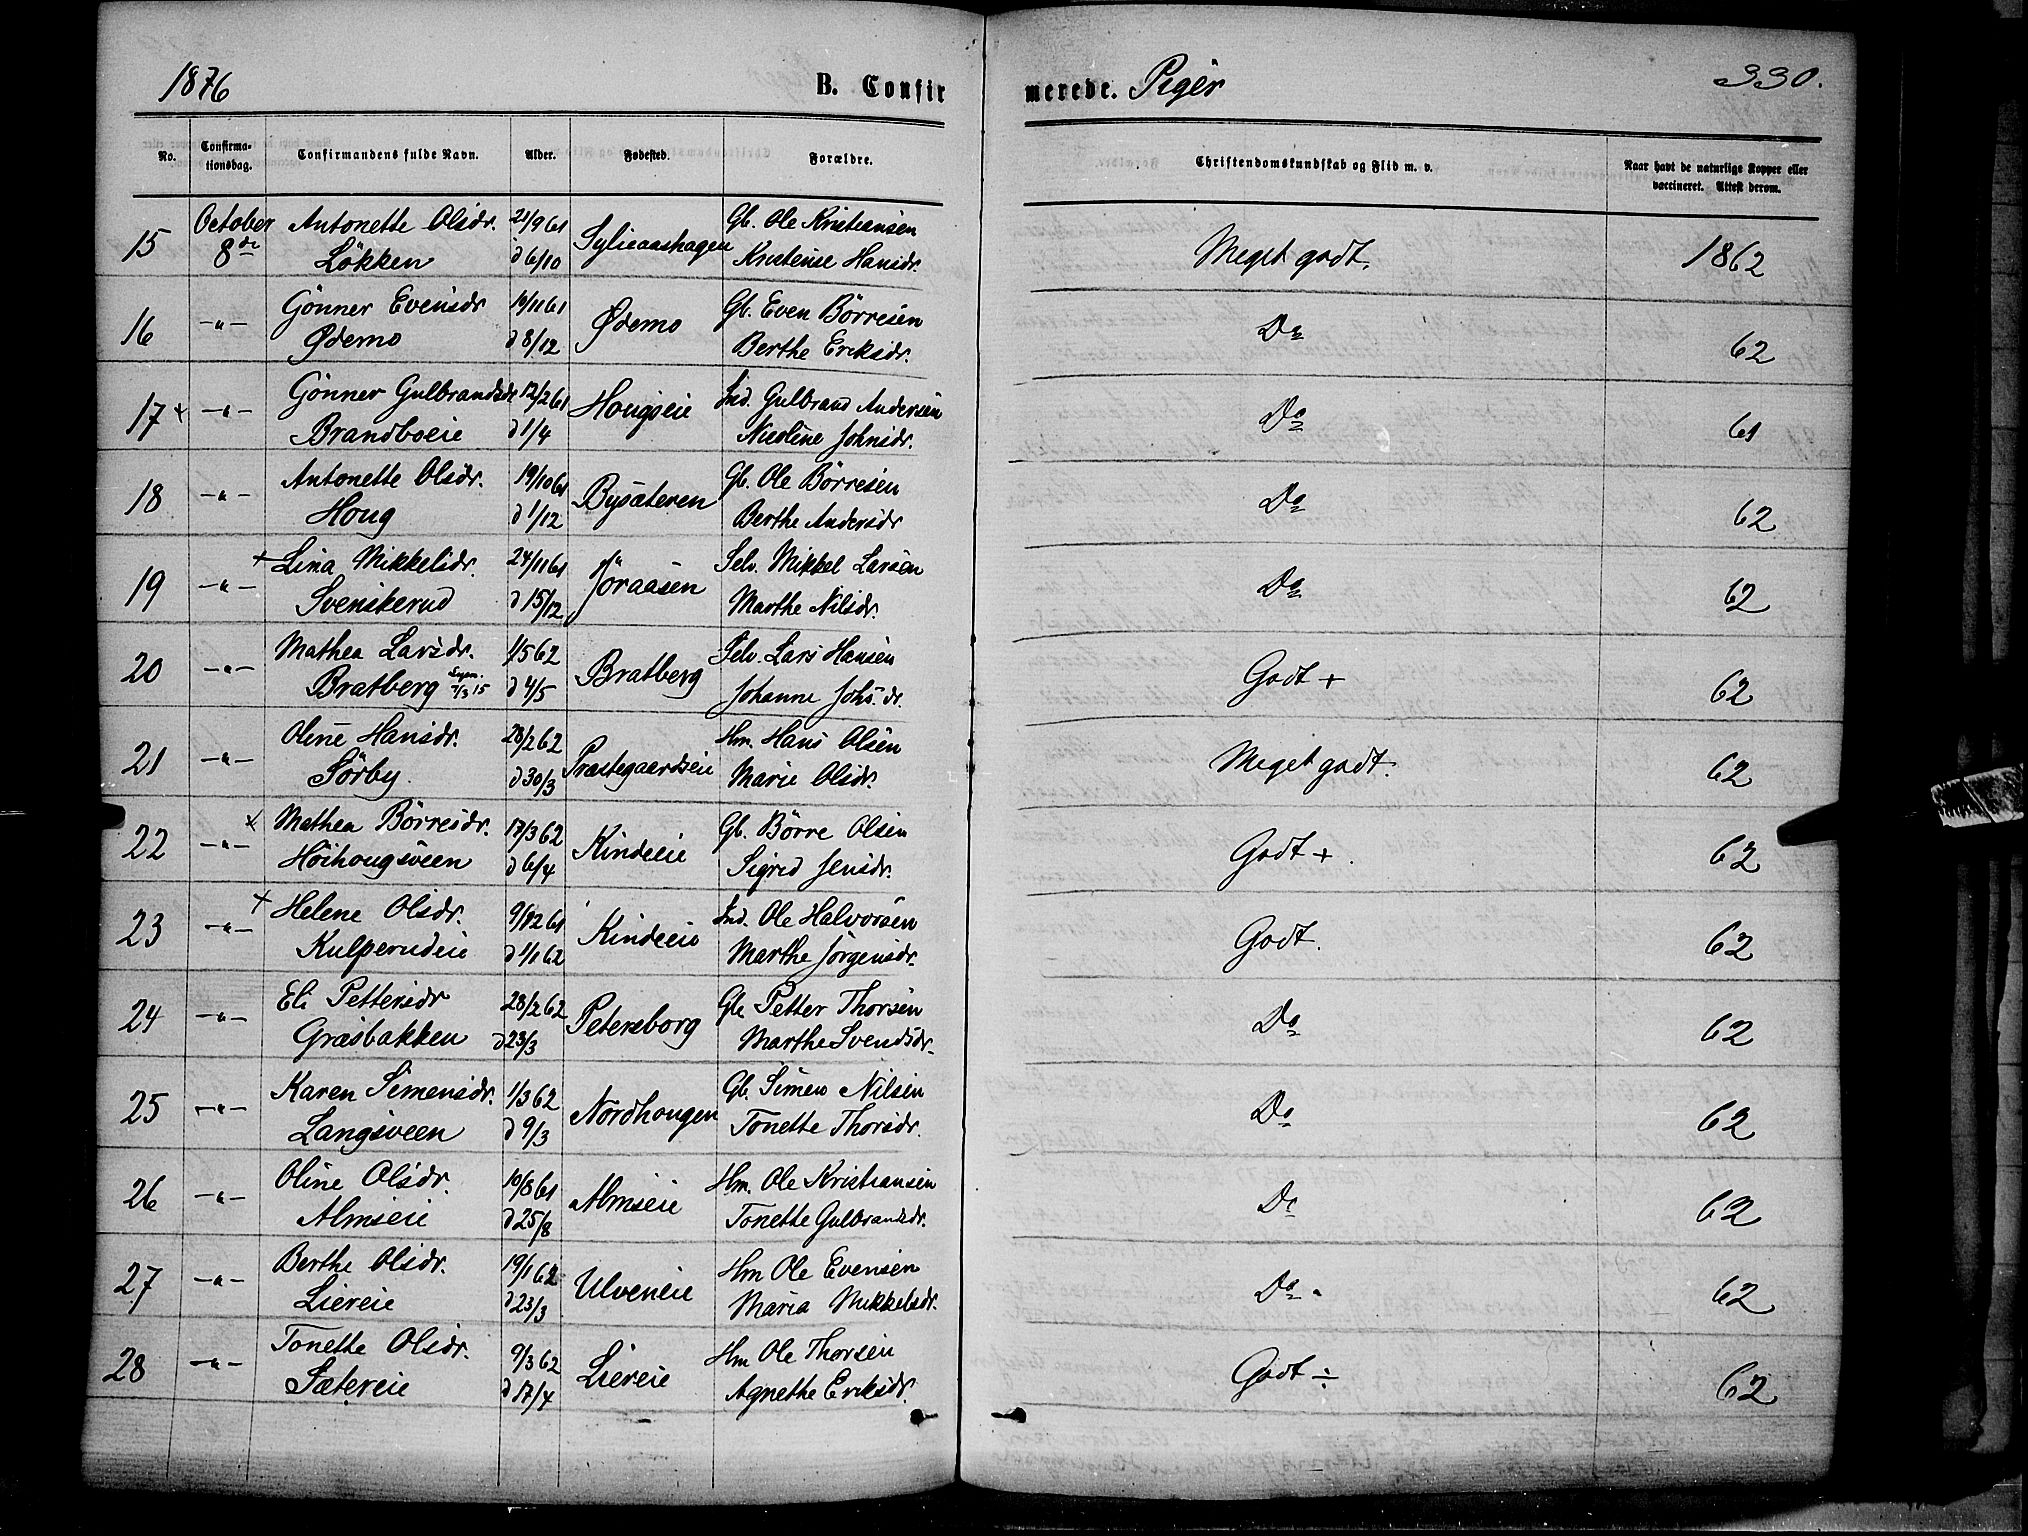 1876
B. Confirmerede. Piger
330.
No.
Confirmationsdag.
Confirmandens fulde Navn.
Alder.
Fødested.
Forældre.
Christendomskundskab og Flid m. v.
Naar havt de naturlige Kopper eller vaccineret. Attest derom.
15 October 8de Antonette Olsdr. 21/9 61 Gb. Ole Kristiansen
Løkken d 6/10 Kristense Hansdr. Meget godt. 1862
16 -"- Gönner Evensdr 10/11 61 Ødemo Gb. Even Börresen
Ødemo d 8/12 Berthe Eriksdr. Do 62
17 x -"- Gönner Gulbrandsdr 12/2 61 Hougseie Ind. Gulbrand Andersen
Brandboeie d 1/4 Nicoline Johnsdr. Do 61
18 -"- Antonette Olsdr. 19/10 61 Bysæteren Gb. Ole Börresen
Houg d 1/12 Berthe Andersdr Do 62
19 -"- + Lina Mikkelsdr. 24/11 61 Jöraasen Selv. Mikkel Larsen
Svenskerud d 15/12 Marthe Nilsdr. Do 62
20 -"- Mathea Larsdr. 1/5 62 Bratberg Selv. Lars Hansen
Bratberg 7/3 15 d 4/5 Johanne Johs.dr. Godt + 62
21 -"- Oline Hansdr. 28/2 62 Præstegaardseie Hm. Hans Olsen
Sörby. d 30/3 Marie Olsdr. Meget godt. 62
22 -"- x Mathea Börresdr. 17/3 62 Kindeeie Gb. Börre Olsen
Höihougsveen d 6/4 Sigrid Jensdr. Godt +. 62
23 -"- + Helene Olsdr. 9/12 61 Kindeeie Ind. Ole Halvorsen
Kulperudeie d 1/1 62 Marthe Jörgensdr. Godt. 62
24 -"- Eli Pettersdr 28/2 62 Petersborg Gb. Petter Thorsen
Græsbakken d 23/3 Marthe Svendsdr. Do 62
25 -"- Karen Simensdr. 1/3 62 Nordhougen Gb. Simen Nilsen
Langsveen d 9/3 Tonette Thorsdr. Do 62
26 -"- Oline Olsdr. 10/8 61 Almseie Hm. Ole Kristiansen
Almseie d 25/8 Tonette Gulbrandsdr. Do 62
27 -"- Berthe Olsdr. 19/1 62 Ulveneie Hm Ole Evensen
Liereie d 23/3 Maria Mikkelsdr. Do. 62
28 -"- Tonette Olsdr. 9/3 62 Liereie Hm Ole Thorsen
Sætereie d 17/4 Agnethe Eriksdr. Godt ÷ 62